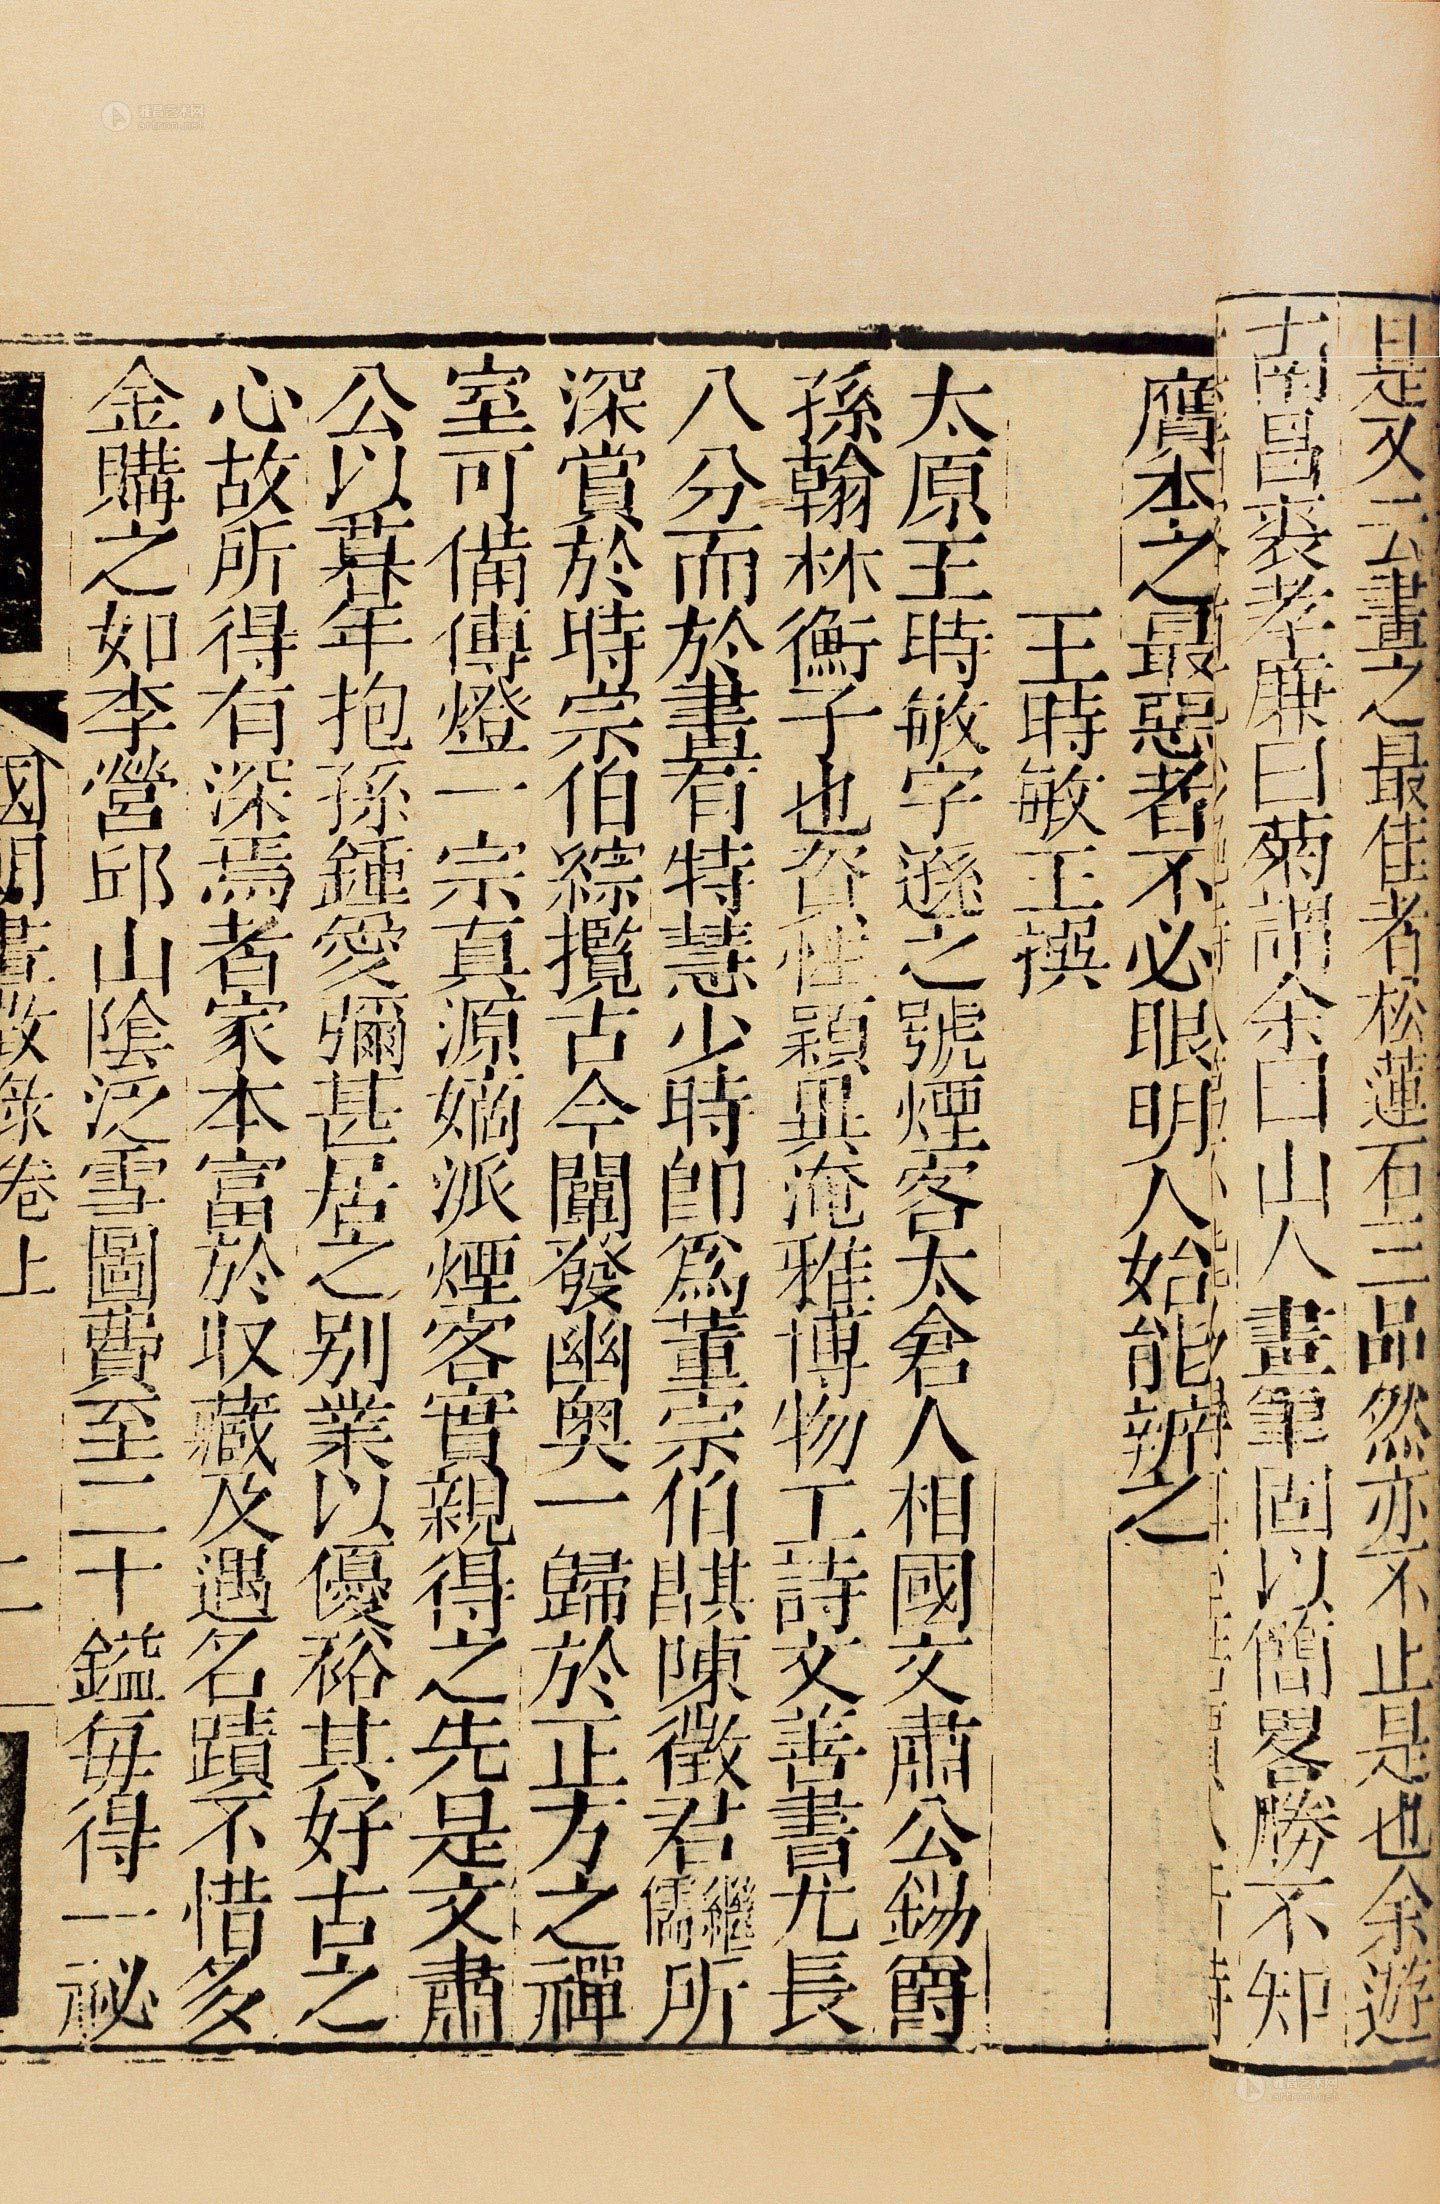 是又云畫之最佳者松蓮石三品然亦不止是也余遊
南昌裘孝廉曰菊謂余曰山人畫筆固以簡畧勝不知
贗本之最惡者不必眼明人始能辨之
王時敏王撰
太原王時敏字遜之號煙客太倉人相國文肅公錫爵
孫翰林衡子也資性穎異淹雅博物工詩文善書尤長
八分而於畫有特慧少時卽爲董宗伯其昌陳徵君繼儒所
深賞於時宗伯綜攬古今闡發幽奥一歸於正方之禪
室可備傳燈一宗真源嫡派煙客實親得之先是文肅
公以暮年抱孫鍾愛彌甚居之别業以優裕其好古之
心故所得有深焉者家本富於收藏及遇名蹟不惜多
金購之如李營邱山陰泛雪圖費至二十鎰每得一祕
國朝畫徵錄卷上
二
雅昌艺术网
artron.net
雅昌艺术网
artron.net